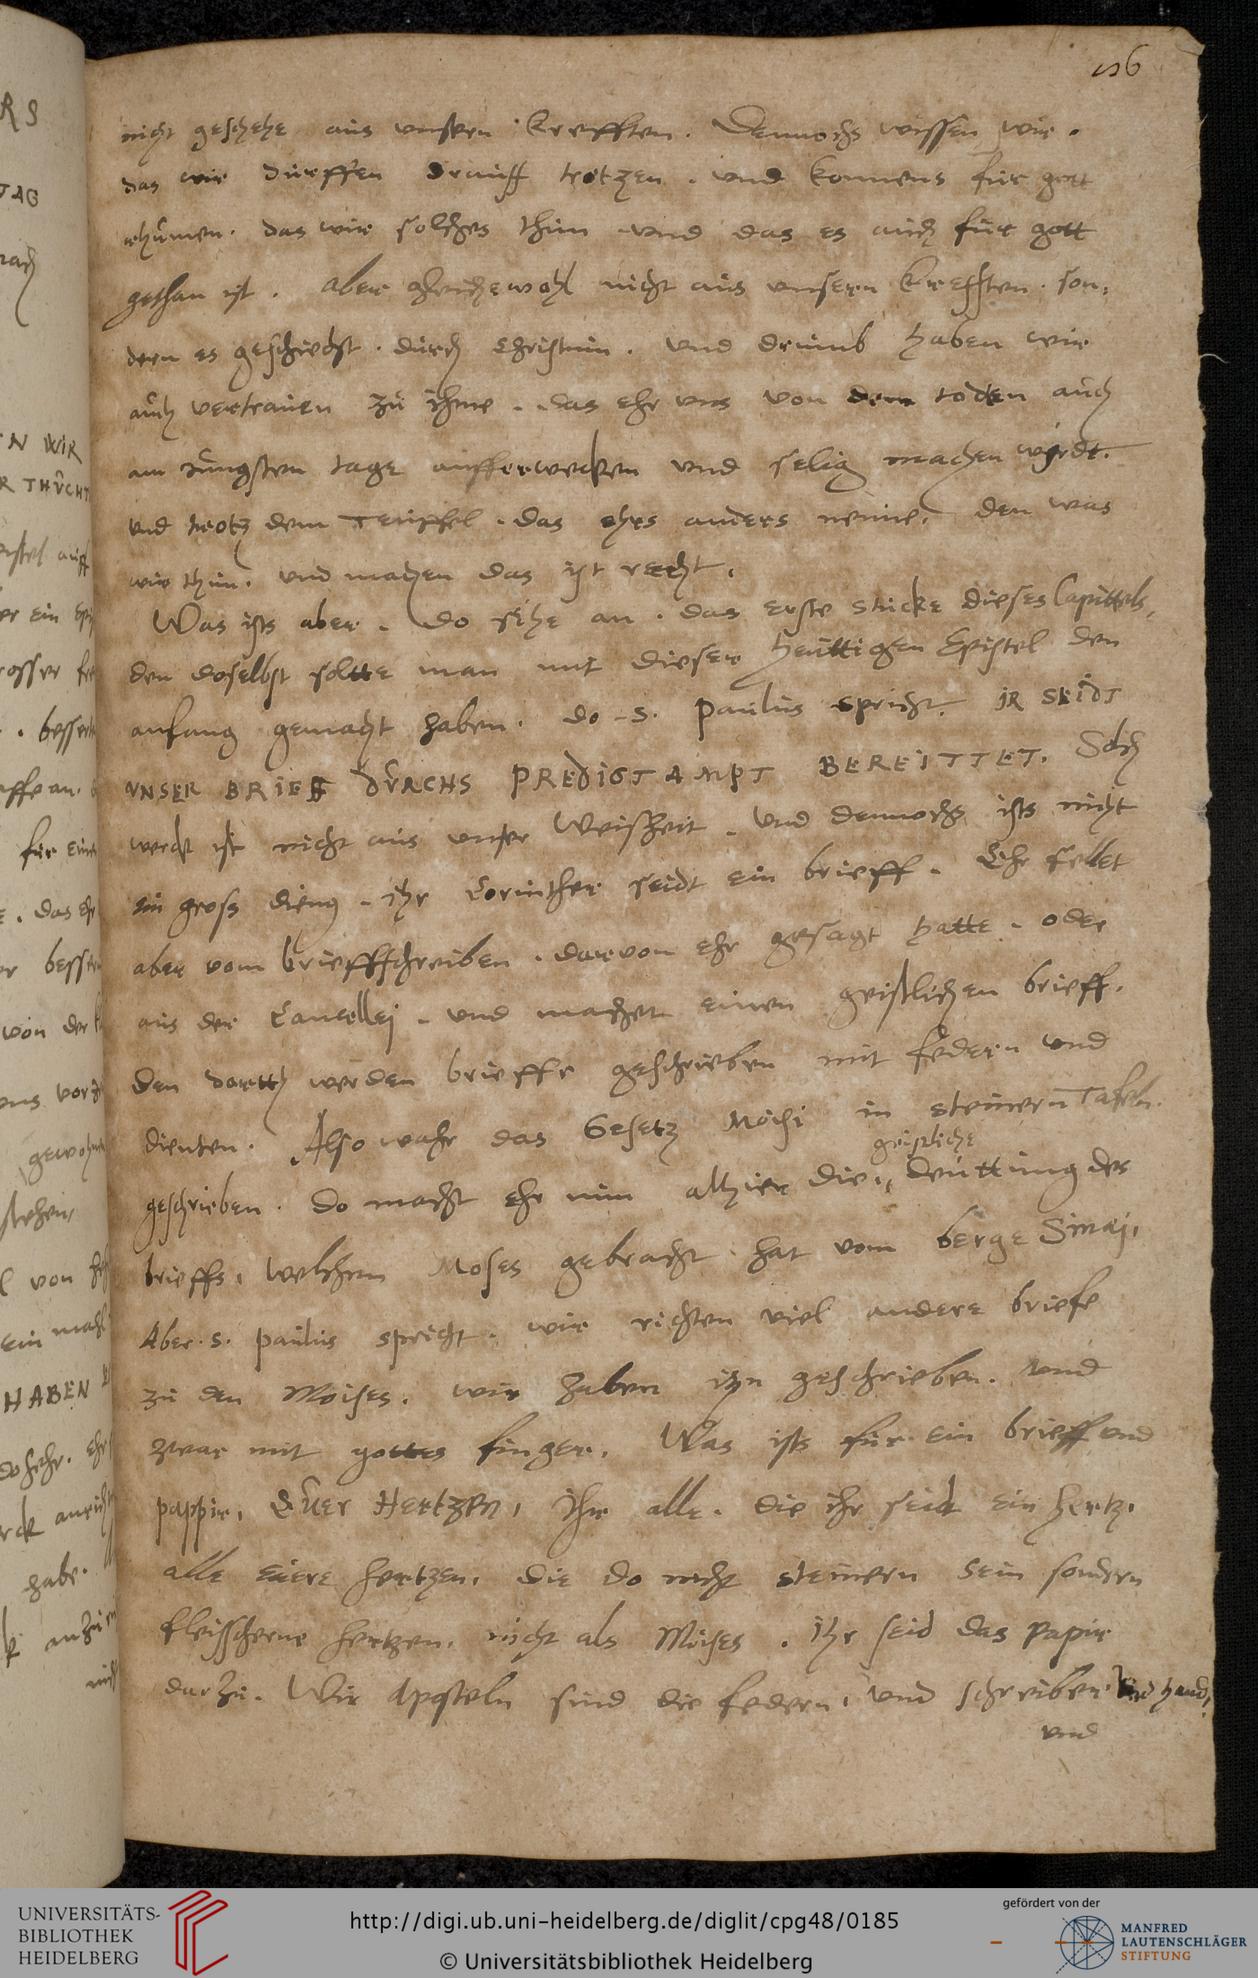 nicht geschehe aus unsern Krefften. Dennochs wissen wir.
das wir dürffen drauff trotzen. und konnens für gott
rhümen. das wir solches thun und das es auch für gott
gethan ist. Aber gleichewohl nicht aus unsern Krefften. son,
dern es geschiecht. durch Christum. und drumb haben wir
auch vertrauen zu ihme. das ehr uns von dem todten auch
am jüngsten tage aufferwecken und selig machen wirdt.
und trotz dem Teuffel. das ehrs anders neme. den was
wir thun. und machen das ist recht.
Was ists aber. do sihe an. das erste stücke dieses Capittels,
den doselbst soltte man mit dieser heuttigen Epistel den
anfang gemacht haben. do S. Paulus spricht. IR SEIDT
UNSER BRIEFF DURCHS PREDIGTAMPT BEREITTET. Solch
werck ist nicht aus unser Weisheit. und dennochs ists nicht
ein gross dieng. ihr Corinther seidt ein brieff. Ehr fellet
aber vom briefffschreiben. darvon ehr gesagt hatte. oder
aus der Cancellej. und machet einen geistlichen brieff.
den dortth werden brieffe geschrieben mit federn und
dienten. Also wahr das Gesetz Moisi in steinern Tafeln.
geistliche
geschrieben. do macht ehr nun alhier die,, deuttung des
brieffs, welchen Moses gebracht hat vom berge Sinaj,
Aber. S. Paulus spricht. wir richten viel andere briefe
zu den Moises. wir haben ihn geschrieben. und
zwar mit gottes finger. Was ists für ein brieff und
pappir, Euer Hertzen, ihr alle. die ihr seidt ein hertz,
alle euere hertzen. die do nicht steinern sein sondern
fleisscherne hertzen. nicht als Moises. ihr seid das papir
darzu. Wir Aposteln sind die federn, und schreiber hand,
und
UNIVERSITÄTS-
BIBLIOTHEK
HEIDELBERG
http://digi.ub.uni-heidelberg.de/diglit/cpg48/0185
© Universitätsbibliothek Heidelberg
gefördert von der
MANFRED
LAUTENSCHLÄGER
STIFTUNG